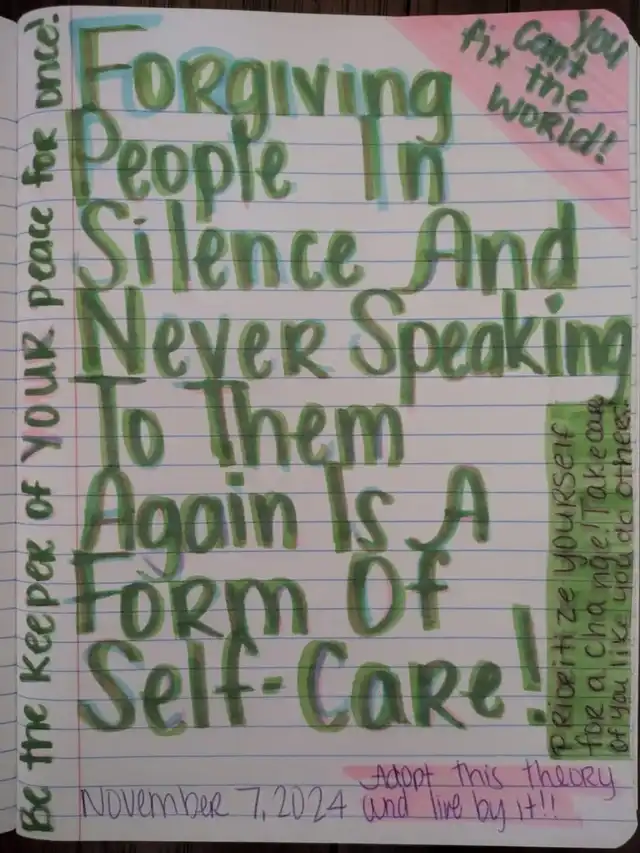 You
Can't
fix the
WORLD!
Forgiving
People In
Silence And
Never Speaking
To Them
Again Is A
Form Of
Self-Care!
Be the Keeper of YOUR peace for once!
Prioritize YOURSELF
for a change! Take care
of you like you do others!
November 7, 2024
Adopt this theory
and live by it!!